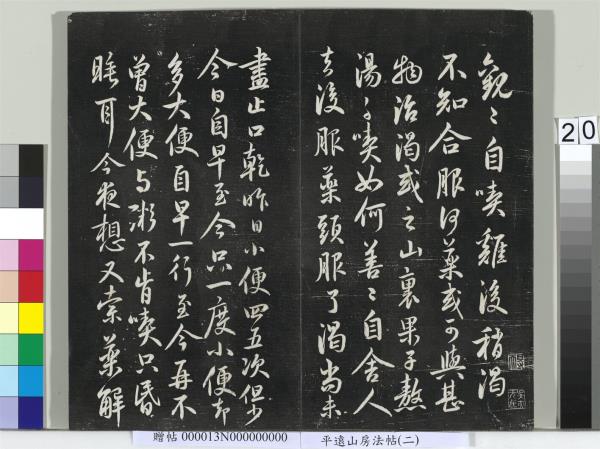 觀〻自喫雞後稍渴
不知合服何藥或可與甚
物治渴或云山裏果子熬
湯与喫如何善〻自舍人
去後服藥頭服了渴尚未
盡止口乾昨日小便四五次但少
今日自早至今只一度小便却
多大便自早一行至今再不
曾大便与粥不肯喫只昏
睡耳今夜想又索藥解
20
贈帖 000013N000000000
平遠山房法帖(二)